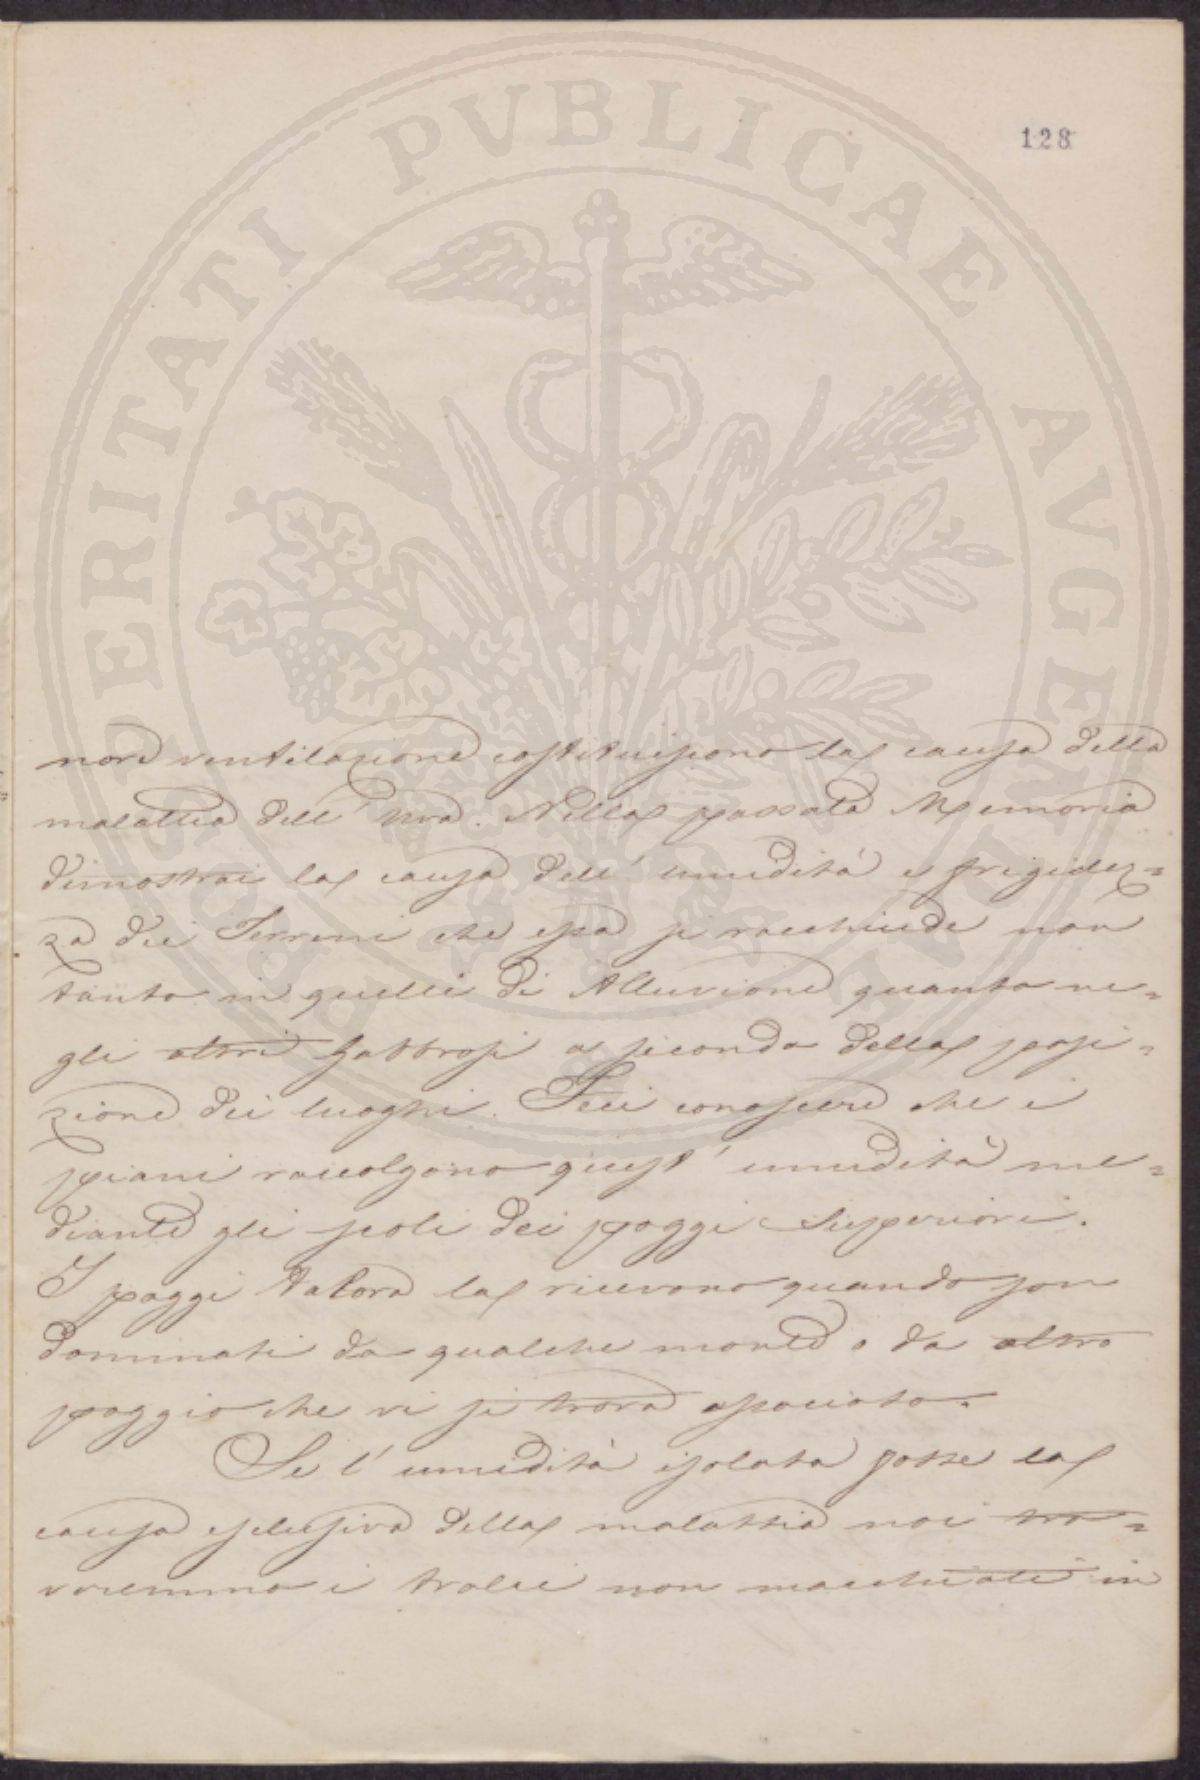 128
nore ventilazione costituiscono la causa della
malattia dell' uva. Nella passata Memoria
dimostrai la causa dell' umidità e frigidez=
za dei Terreni che essa si racchiude non
tanto in quelli di Alluvione quanto ne=
gli altri Gabbrosi a seconda della posi=
zione dei luoghi. Feci conoscere che i
piani raccolgono quest' umidità me=
diante gli scoli dei poggi Superiori.
I poggi talora la ricevono quando son
dominati da qualche monte o da altro
poggio che vi si trova associato.
Se l' umidità isolata fosse la
causa esclusiva della malattia noi tro=
veremmo i tralci non macchiati in
PROSPERITATI PVBLICAE AVGENDAE